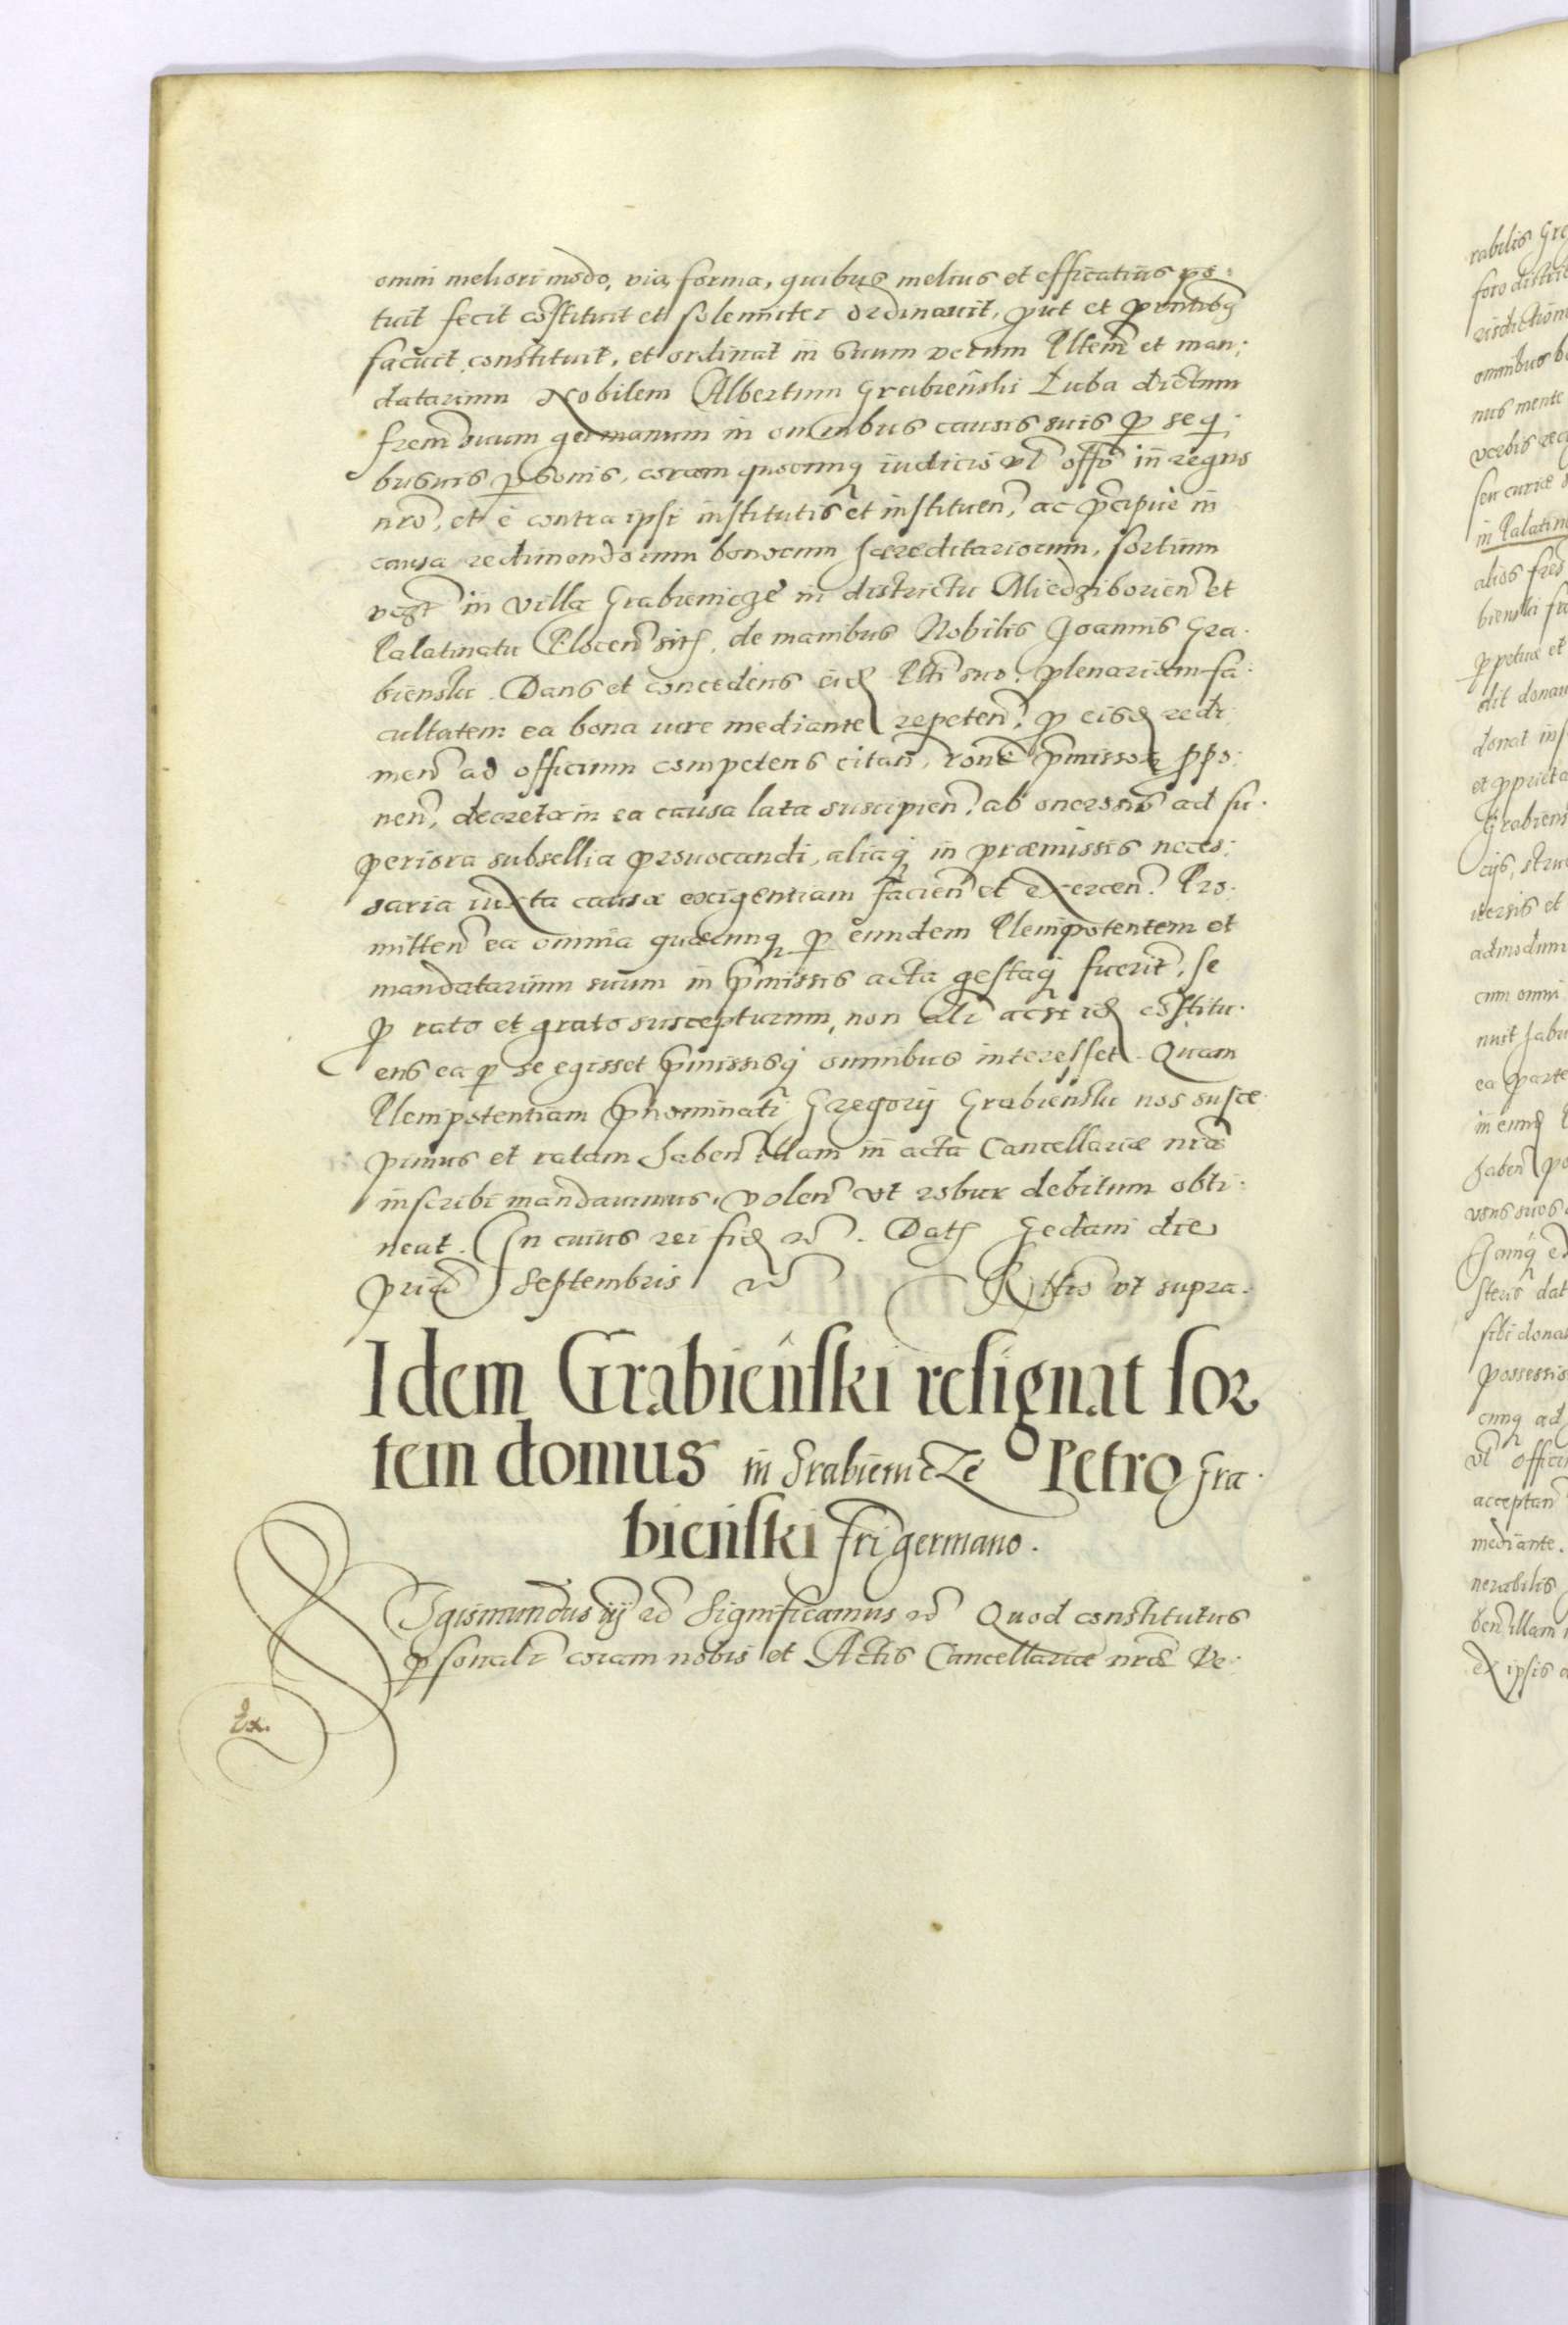 omni meliori modo, via, forma, quibus melius et efficatius po:
tuit fecit cõstituit et solenniter ordinavit, put et pñtibq
faciuit, constituit, et ordinat in suum verum Pltem et man:
datarium Nobilem Albertum Grabieński Zuba dictum
frem suum germanum in omnibus causis suis p se q
busuis psonis, coram quocunq iudicio vl offo in regno
nro, et è contra ipsi institutis et instituen, ac pcipue in
causa redimendorum bonorum hæreditariorum, sortium
vczt in villa Grabienicze in districtu Miedziborien et
Palatinatu Plocen sit, de manibus Nobilis Joannis Gra:
bienski. Dans et concedens eid Plti suo, plenariam fa:
cultatem ea bona iure mediante repeten, p eisd redi:
men ad officium competens citan, rone pmissor ppo:
nen, decreta in ea causa lata suscipien, ab onerosis ad su:
periora subsellia provocandi, aliaq in præmissis neces:
saria iuxta causæ exigentiam facien et exercen. Pro:
mitten ea omnia quæcunq p eundem Plenipotentem et
mandatarium suum in pmissis acta gestaq fuerit, se
p rato et grato suscepturum, non alr acsi id cõstitu:
ens ea p se egisset pmissisq omnibus interesset. Quam
Plenipotentiam pnominati Gregorij Grabienski nos susce
pimus et ratam haben illam in acta Cancellariæ nræ
inscribi mandavimus, volen vt robur debitum obti:
neat. In cuius rei fid etc. Dat Gedani die
pria Septembris etc Rttio vt supra.
Idem Grabieński resignat sor
tem domus in Grabienicze Petro Gra:
bieński fri germano.
Sigismundus iij etc Significamus etc Quod constitutus
psonalr coram nobis et Actis Cancellariæ nræ Ve:
Ex.